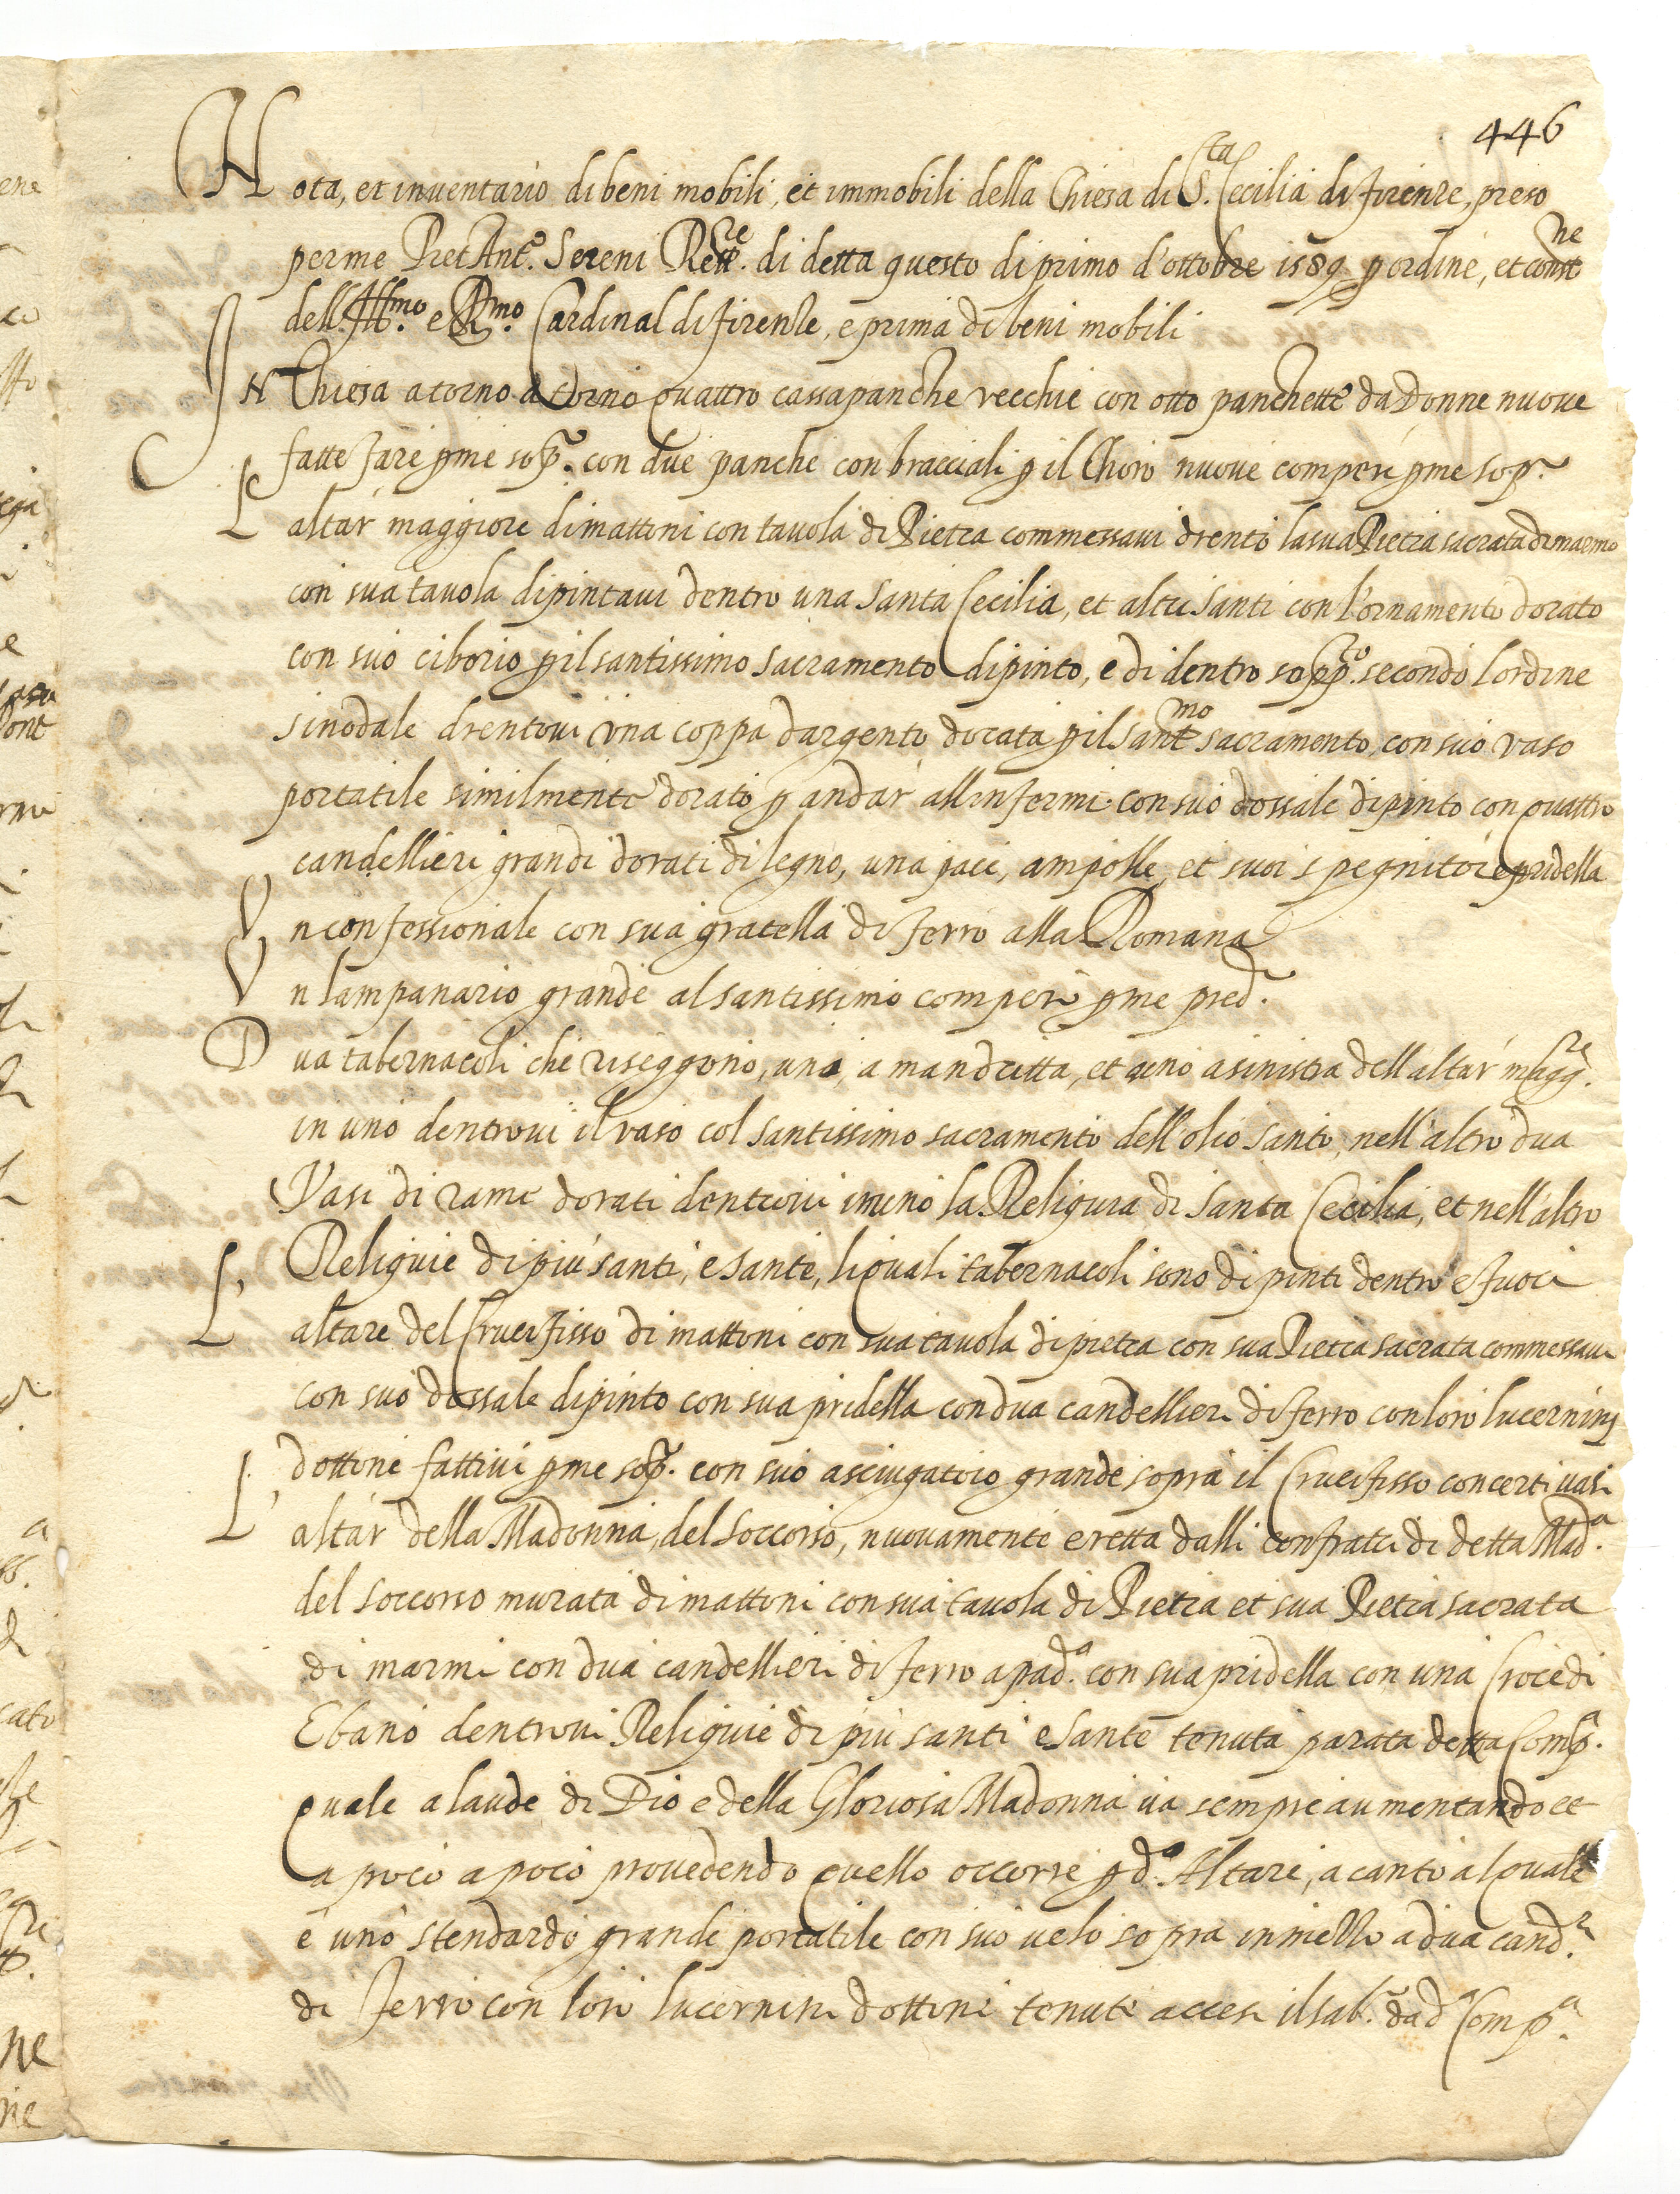 446
Nota, et inventario di beni mobili, et immobili della Chiesa di S.ta Cecilia di firenze, preso
per me Pret Ant.o Sereni Rett.re di detta questo di primo d'ottobre 1589 p ordine, et const.ne
dell Ill.mo e R.mo Cardinal di firenze, e prima di beni mobili
IN Chiesa atorno atorno quattro cassapanche vecchie con otto panchette da Donne nuove
fatte fare p me sop.a con due panche con bracciali p il Choro nuove compere p me sop.a
L altar maggiore di mattoni con tavola di Pietra commessavi drento la sua Pietra sacrata di marmo
con sua tavola dipintavi dentro una Santa Cecilia, et altri santi con l'ornamento dorato
con suo ciborio p il santissimo sacramento dipinto, e di dentro sopp.to secondo lordine
sinodale drentovi una coppa dargento dorata p il sant.mo sacramento, con suo vaso
portatile similmente dorato p andar all infermi con suo dossale dipinto con quattro
candellieri grandi dorati di legno, una pace, ampolle, et suoi spegnitoi e pridella
Un confessionale con sua gratella di ferro alla Romana
Un lampanario grande al santissimo compero p me pred.o
Dua tabernacoli che riseggono, uno, a mandritta, et uno a sinistra dell altar magg.re
in uno dentrovi il vaso col santissimo sacramento dell'olio santo, nell'altro dua
Vasi di rame dorati dentrovi in uno la Reliquia di Santa Cecilia, et nell'altro
Reliquie di più santi, e sante, li quali tabernacoli sono dipinti dentro e fuori
L' altare del Crucifisso di mattoni con sua tavola di pietra con sua Pietra sacrata commessavi
con suo dossale dipinto con sua pridella con dua candellieri di ferro con loro lucernini
dottone fattivi p me sop.a con suo asciugatoio grande sopra il Crucifisso con certi vasi
L' altar della Madonna, del soccorso, nuovamente eretta dalli confratri di detta Mad.a
del soccorso murata di mattoni con sua tavola di Pietra et sua Pietra sacrata
di marmi con dua candellieri di ferro apad.o con sua pridella con una Croce di
Ebano dentrovi Reliquie di più santi e sante tenuta parata detta Comp.a
quale a laude di Dio e della Gloriosa Madonna va sempre aumentando et
a poco a poco provedendo quello occorre p d.o Altare, a canto al quale
e uno stendardo grande portatile con suo velo sopra in mezzo a dua cand.ri
di ferro con loro lucernini dottone tenuti accesi il sab.to da d.a Comp.a